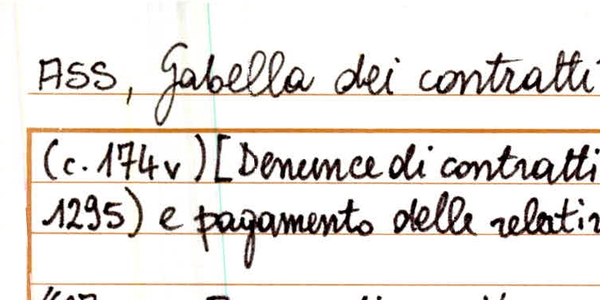 ASS, Gabella dei contratti
(c. 174v) [Denunce di contratti
1295) e pagamento delle